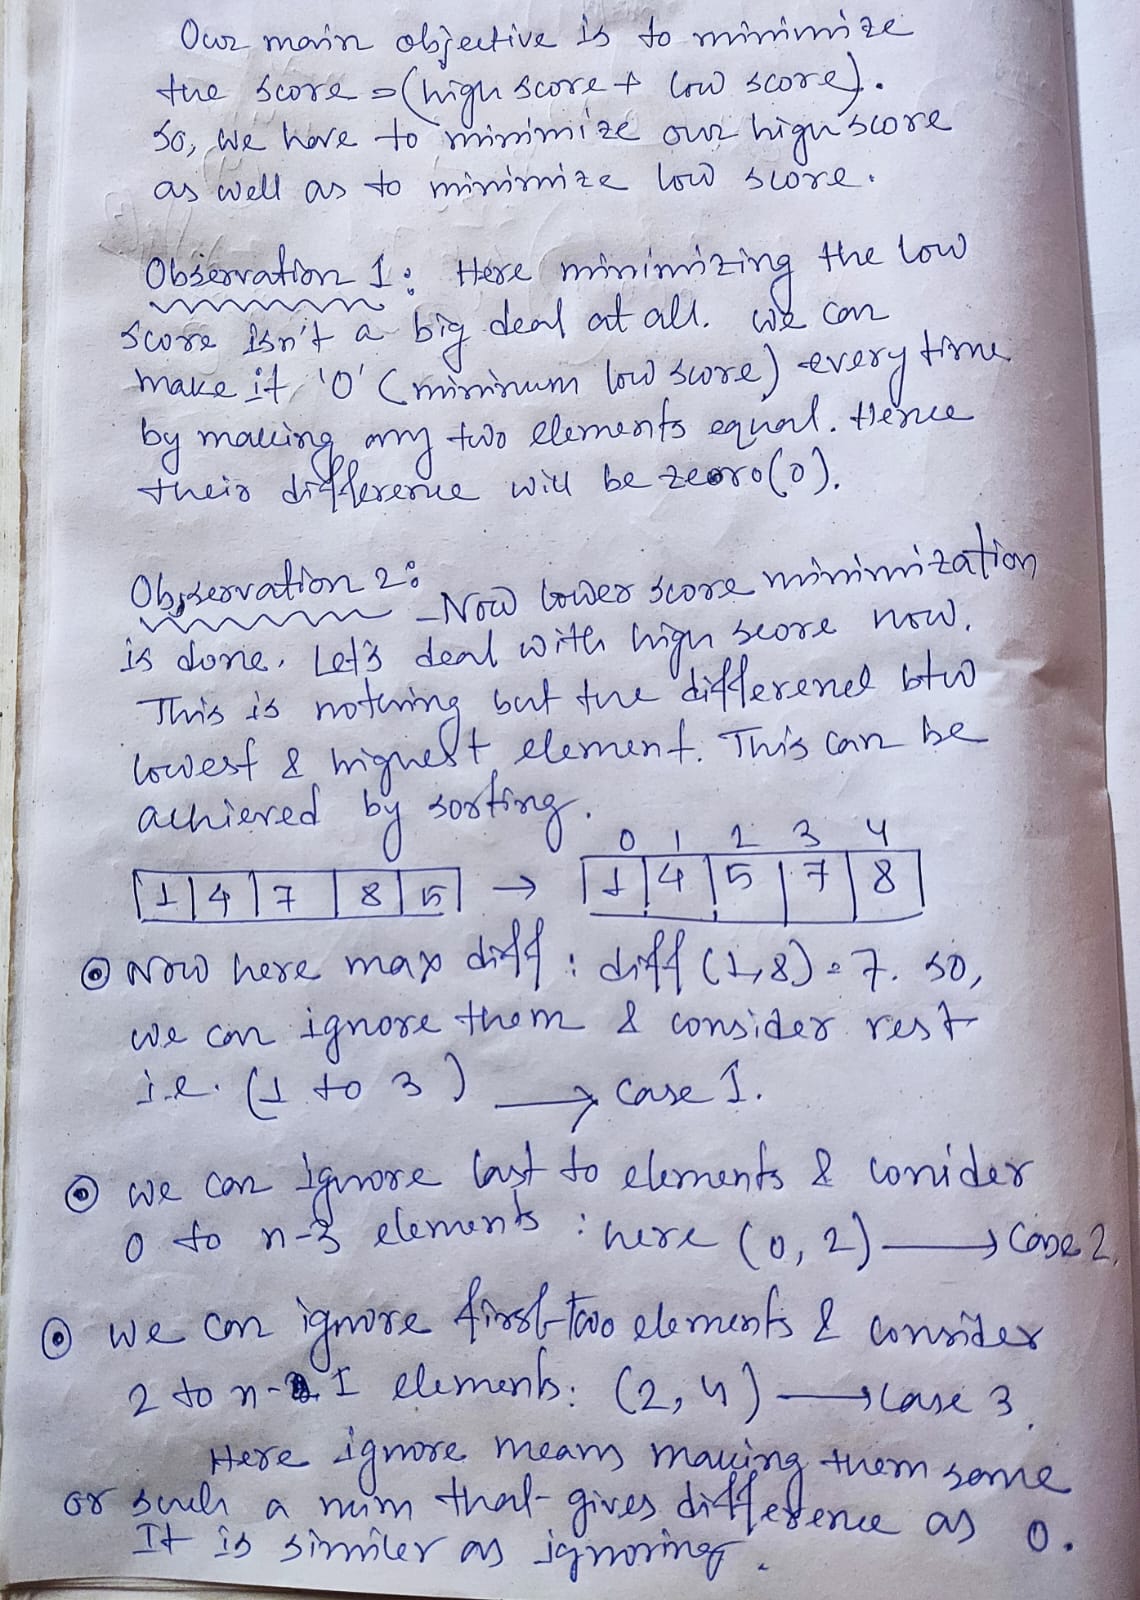 Our main objective is to minimize
the score = (high score + low score).
So, we have to minimize our high score
as well as to minimize low score.
Observation 1: Here minimizing the low
score isn't a big deal at all. we can
make it '0' (minimum low score) every time
by making any two elements equal. Hence
their difference will be zeoro(0).
Observation 2: Now lower score minimization
is done. Let's deal with high score now.
This is nothing but the difference btw
lowest & highest element. This can be
achieved by sorting.
0 1 2 3 4
1 4 7 8 5 → 1 4 5 7 8
Now here max diff : diff (1,8) = 7. so,
we can ignore them & consider rest
i.e. (1 to 3) → Case 1.
we can ignore last to elements & conider
0 to n-3 elements : here (0, 2) → Case 2.
we can ignore first two elements & consider
2 to n-1 elements: (2, 4) → Case 3.
Here ignore means making them same
or such a num that gives difference as 0.
It is similer as ignoring.